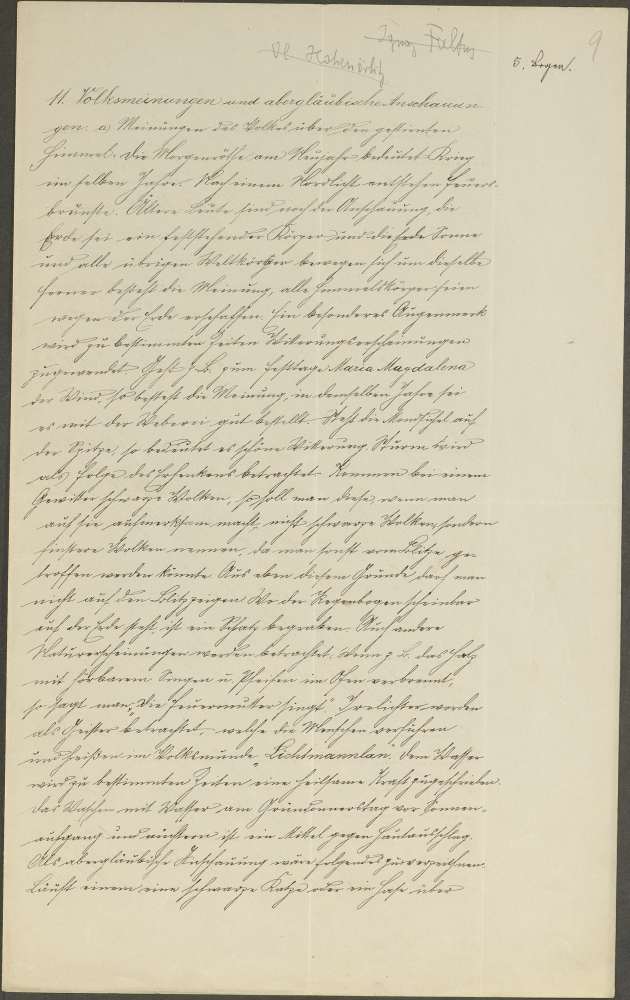 Ignaz Faltus
Ob. Hohenörlitz
9
5. Bogen.
11. Volksmeinungen und abergläubische Anschauun-
gen. a) Meinungen des Volkes über den gestirnten
Himmel. Die Morgenröthe am Neujahr bedeutet Krieg
im selben Jahre. Nach einem Nordlicht entstehen Feuers-
brünste. Ältere Leute sind noch der Anschauung, die
Erde sei ein feststehender Körper und die Sonne
und alle übrigen Weltkörper bewegen sich um dieselbe
Ferner besteht die Meinung, alle Himmelskörper seien
wegen der Erde erschaffen. Ein besonderes Augenmerk
wird zu bestimmten Zeiten Witterungserscheinungen
zugewendet. Geht z. B. zum Festtage Maria Magdalena
der Wind, so besteht die Meinung, in demselben Jahre sei
es mit der Weberei gut bestellt. Steht die Mondsichel auf
der Spitze, so bedeutet es schöne Witterung. Sturm wird
als Folge des Erhenkens betrachtet. Kommen bei einem
Gewitter schwarze Wolken, so soll man diese, wenn man
auf sie aufmerksam macht, nicht schwarze Wolken, sondern
finstere Wolken nennen, da man sonst vom Blitze ge-
troffen werden könnte. Aus eben diesem Grunde darf man
nicht auf den Blitz zeigen. Wo der Regenbogen scheinbar
auf der Erde steht, ist ein Schatz begraben. Auch andere
Naturerscheinungen werden betrachtet. Wenn z. B. das Holz
mit hörbarem Singen u. Pfeifen im Ofen verbrennt,
so sagt man: "Die Feuermutter singt." Irrlichter werden
als Geister betrachtet, welche die Menschen verführen
und heißen im Volksmunde "Lichtmannlan". Dem Wasser
wird zu bestimmten Zeiten eine heilsame Kraft zugeschrieben.
Das Waschen mit Wasser am Gründonnerstag vor Sonnen-
aufgang und ist ein Mittel gegen Hautausschlag.
Als abergläubische Anschauung wäre folgendes zu verzeichnen.
Läuft einem eine schwarze Katze oder ein Hase über